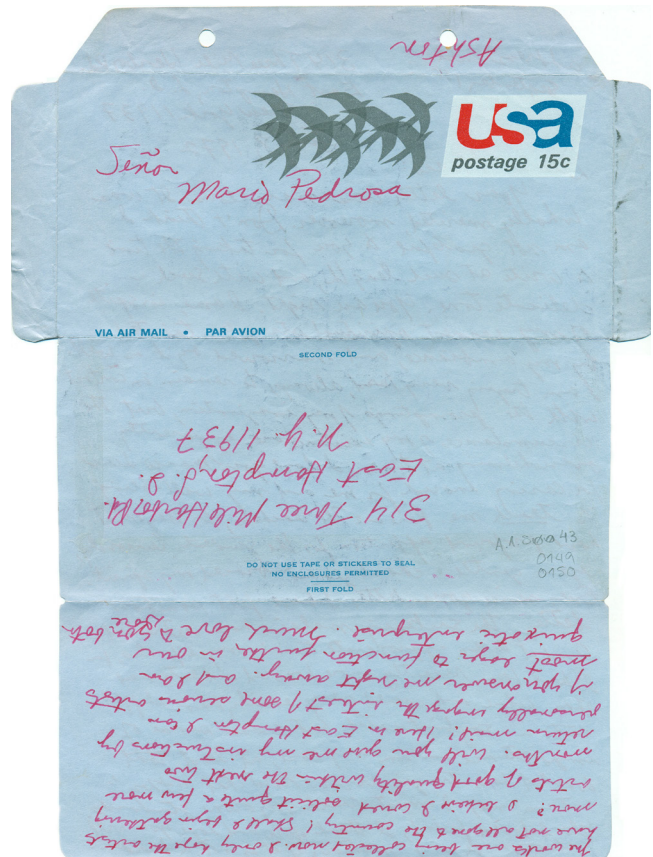 Ashton
usa
postage 15c
Señor
Mario Pedrosa
VIA AIR MAIL • PAR AVION
SECOND FOLD
314 Three Mile Harbor Rd.
East Hampton, L.I.
N.Y. 11937
0149
0150
DO NOT USE TAPE OR STICKERS TO SEAL
NO ENCLOSURES PERMITTED
FIRST FOLD
The works are being collected now. I only hope the artists
have not all gone to the country! Shall I begin gathering
more? I believe I could solicit quite a few more
artists of good quality within the next two
months. Will you give me my instructions by
return mail? Here in East Hampton I can
personally urge the interest of some serious artists
if you answer me right away. and I am
most eager to function further in our
quixotic enterprise. Much love to you both
Dore